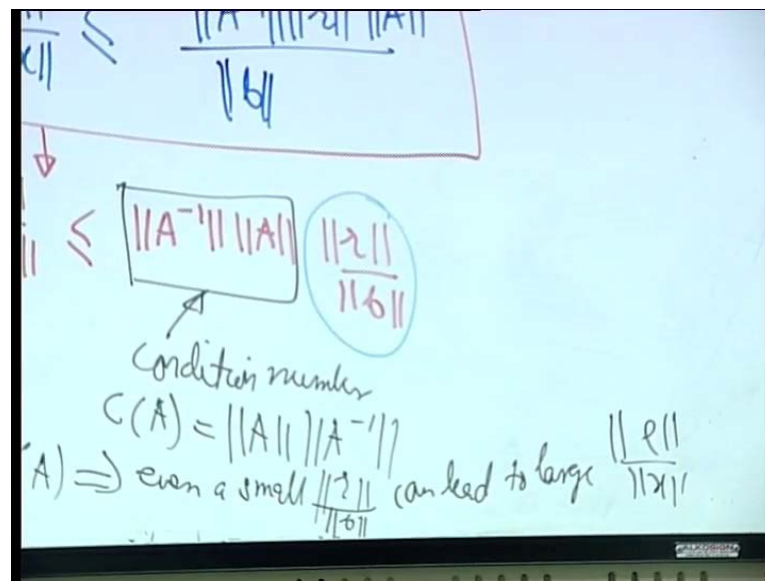 ‖ ≤ ‖A⁻¹‖ ‖r‖ ‖A‖
‖x‖ ‖b‖
‖ ≤ ‖A⁻¹‖ ‖A‖ ‖r‖
‖b‖
Condition number
C(A) = ‖A‖ ‖A⁻¹‖
A) ⇒ even a small ‖r‖/‖b‖ can lead to large ‖e‖/‖x‖